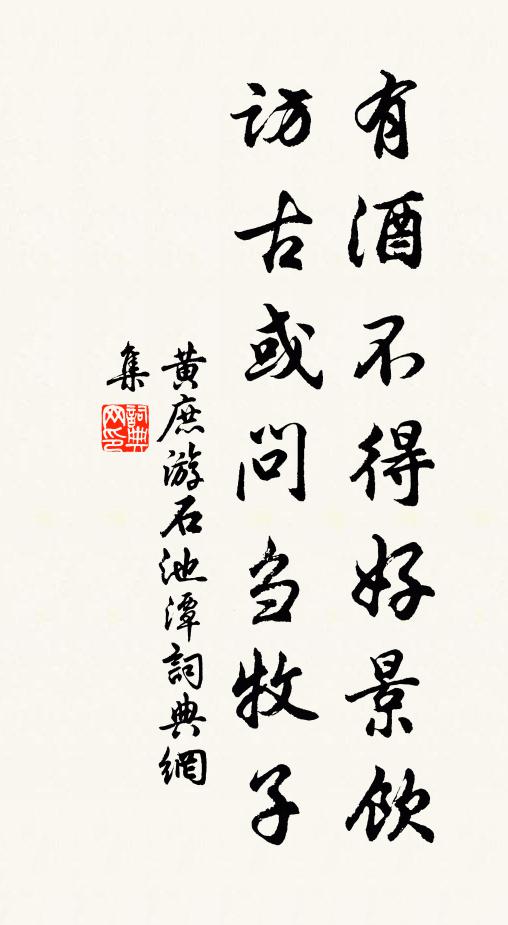 有酒不得好景飲
訪古或問芻牧子
黃庶游石池潭詞典網
集
詞典
网印